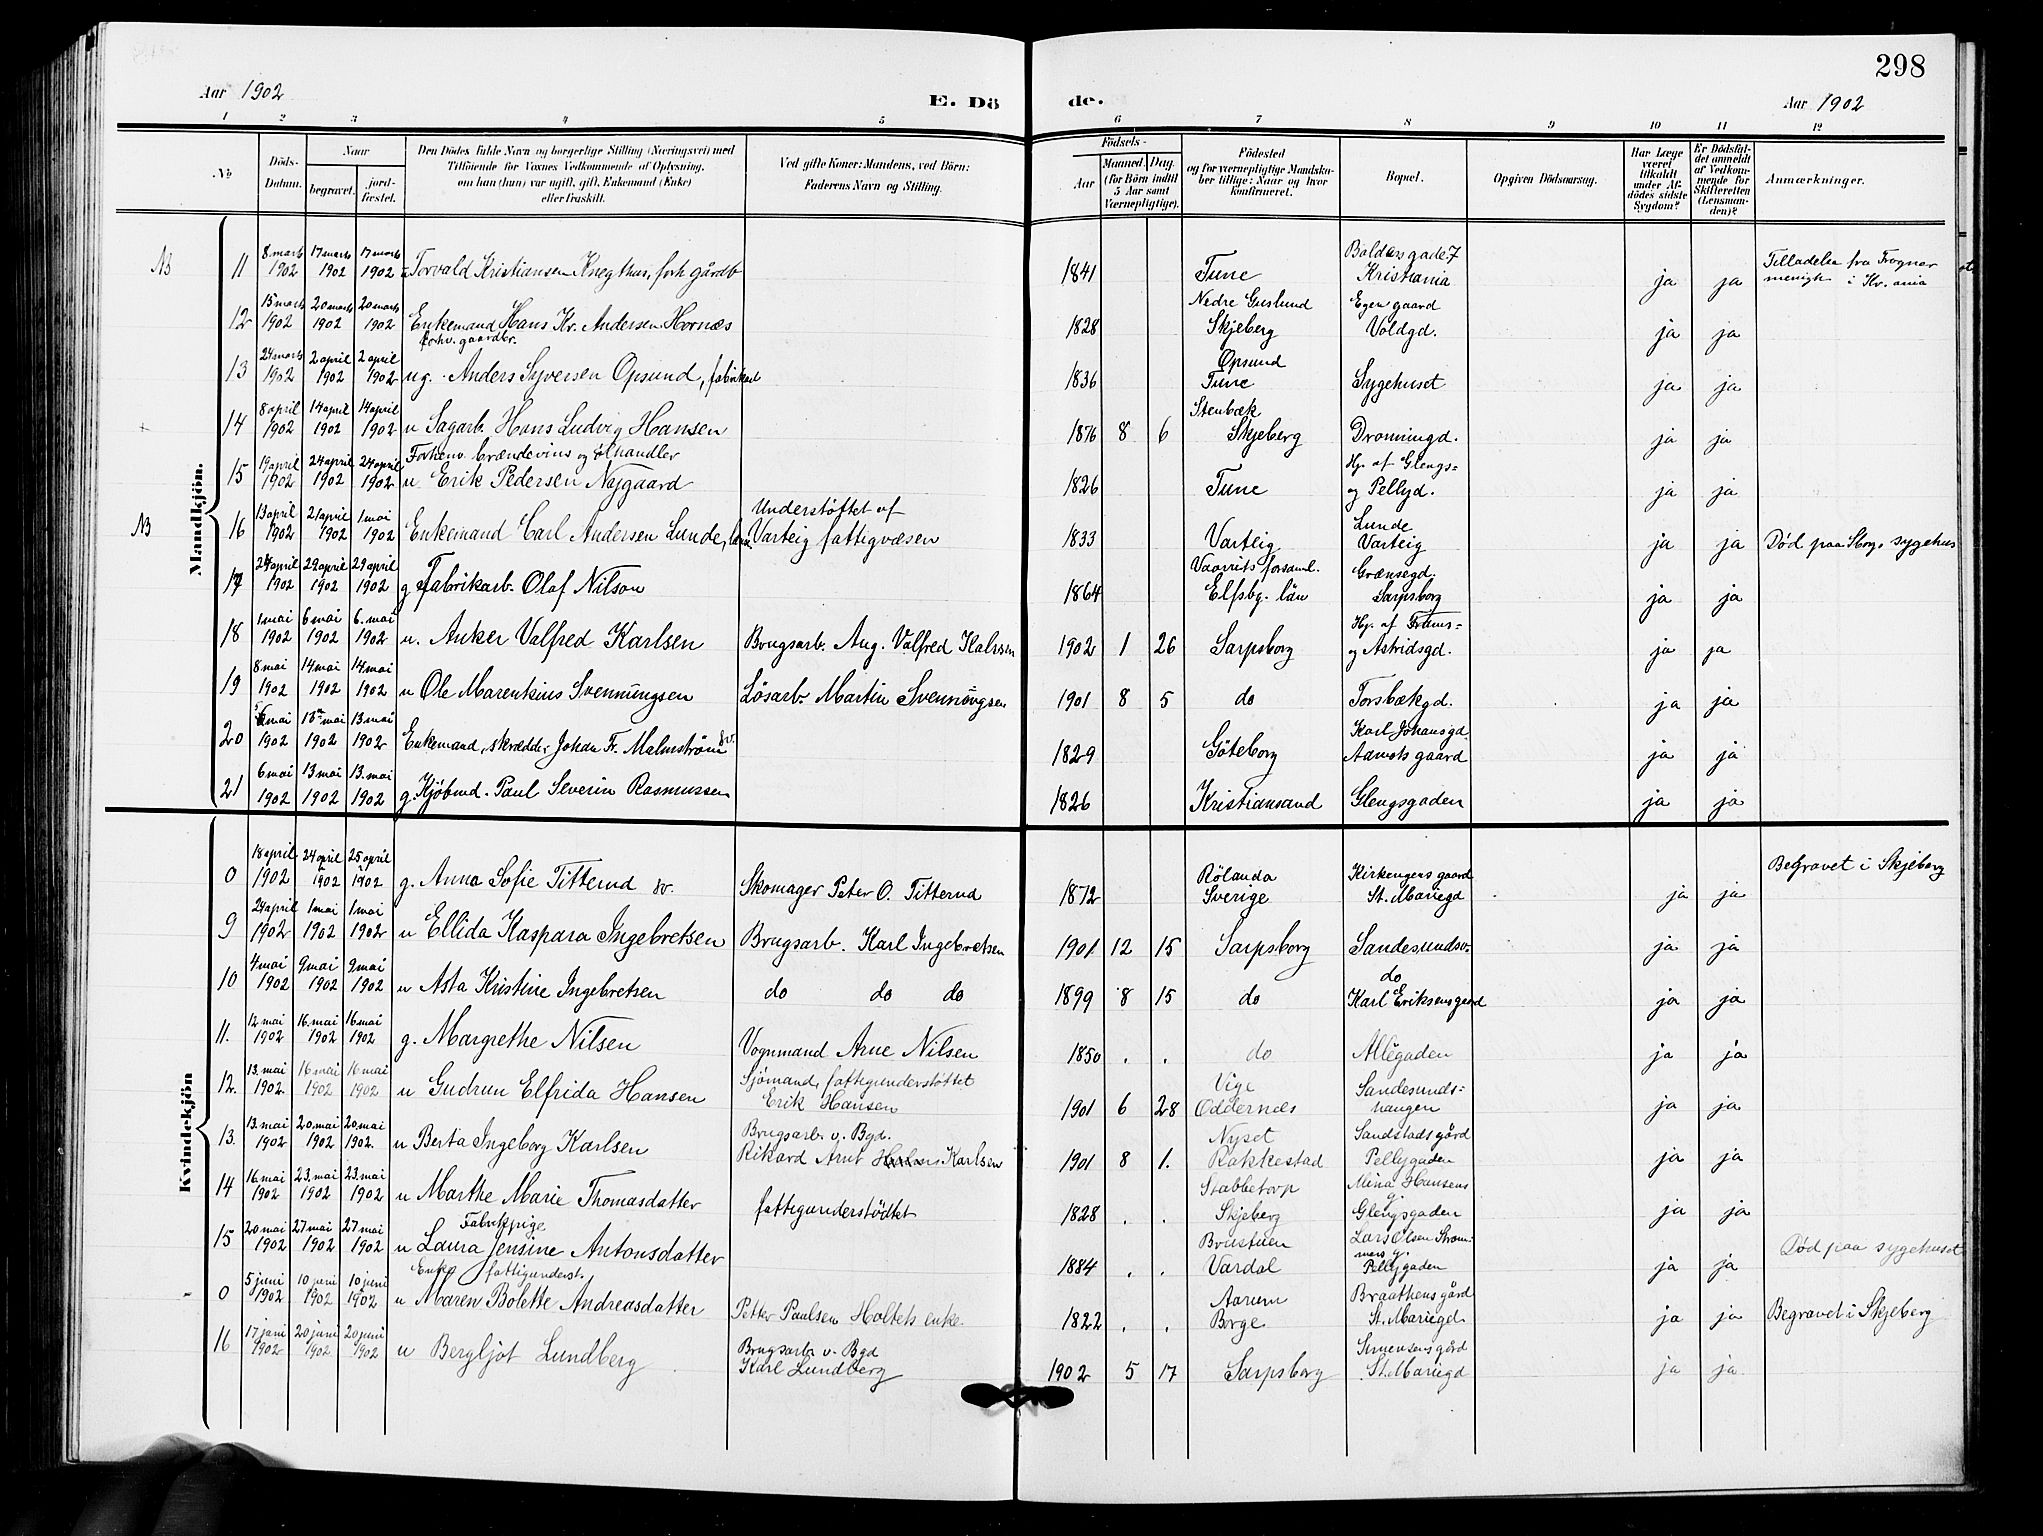 298
Aar 1902
E. Dö
de.
Aar 1902
1 2 3 4 5 6 7 8 9 10 11 12
No
Döds-Datum.
Naar
begravet.
jord-fæstet.
Den Dödes fulde Navn og borgerlige Stilling (Næringsvei) med
Tilföiende for Voxnes Vedkommende af Oplysning,
om han (hun) var ugift, gift, Enkemand (Enke)
eller fraskilt.
Ved gifte Koner: Mandens, ved Börn:
Faderens Navn og Stilling.
Födsels-
Aar
Maaned. Dag.
(for Börn indtil
5 Aar samt
Værnepligtige).
Födested
og for værnepligtige Mandska-
ber tillige: Naar og hvor
konfirmeret.
Bopæl.
Opgiven Dödsaarsag.
Har Læge
været
tilkaldt
under Af-
dödes sidste
Sygdom?
Er Dödsfal-
det anmeldt
af Vedkom-
mende for
Skifteretten
(Lensman-
den)?
Anmærkninger.
Mandkjön.
NB 11 8 marts 1902 17 marts 1902 17 marts 1902 Torvald Kristiansen Knegthus, forh gårdb 1841 Tune Kristiania ja ja Tilladelse fra Frogner menigh i Kr.ania
12 15 marts 1902 20 marts 1902 20 marts 1902 Enkemand Hans Kr. Andersen Hornæs forhv. gaardbr. 1828 Nedre Guslund Skjeberg Egen gaard Voldgd. ja ja
13 24 marts 1902 2 april 1902 2 april 1902 ug. Anders Syversen Opsund, fabrikarb 1836 Opsund Tune Sygehuset ja ja
14 8 april 1902 14 april 1902 14 april 1902 u Sagarb. Hans Ludvig Hansen 1876 8 6 Stenbæk Skjeberg Dronningd. ja ja
15 19 april 1902 24 april 1902 24 april 1902 Forhenv. brændevins og ølhandler u Erik Pedersen Nygaard 1826 Tune Hj. af Glengs= og Pellyd. ja ja
NB 16 13 april 1902 21 april 1902 1 mai 1902 Enkemand Carl Andersen Lunde, Understøttet af Varteig fattigvæsen 1833 Varteig Lunde Varteig ja ja Død paa Sbogs sygehus
17 24 april 1902 29 april 1902 29 april 1902 g Fabrikarb. Olaf Nilson 1864 Elfsbg. län Grænsegd. Sarpsborg ja ja
18 1 mai 1902 6 mai 1902 6. mai 1902 u. Anker Valfred Karlsen Brugsarb. Aug. Valfred Kalrsen 1902 1 26 Sarpsborg Hj. af Trums= og Astridsgd. ja ja
19 8 mai 1902 14 mai 1902 14 mai 1902 u Ole Marenkius Svennungsen Løsarb. Martin Svennŭngsen 1901 8 5 do Torsbækgd. ja ja
20 mai 1902 13 mai 1902 13 mai 1902 Enkemand, skrædder Johan Fr. Malmstrøm sv. 1829 Göteborg Karl Johansgd. Aamots gaard ja ja
21 6 mai 1902 13 mai 1902 13. mai 1902 g. Kjøbmd. Paul Severin Rasmussen 1826 Kristiansand Glengsgaden ja ja
Kvindekjön
0 18 april 1902 24 april 1902 25 april 1902 g. Anna Sofie Titterud sv. Skomager Peter O. Titterud 1872 Rölanda Sverige Kirkengens gaard St. Mariegd ja ja Begravet i Skjeberg
9 24 april 1902 1 mai 1902 1 mai 1902 u Ellida Kaspara Ingebretsen Brugsarb. Karl Ingebretsen 1901 12 15 Sarpsborg Sandesundsv. ja ja
10 4 mai 1902 9 mai 1902 9 mai 1902 u Asta Kristine Ingebretsen do do do 1899 8 15 do do Karl Eriksens gaard ja ja
11. 12 mai 1902 16. mai 1902 16 mai 1902 g. Margrethe Nilsen Vognmand Arne Nilsen 1850 . . do Allégaden ja ja
12. 13. mai 1902 16 mai 1902 16 mai 1902 u Gudrun Elfrida Hansen Sjömand, fattigunderstøttet Erik Hansen 1901 6 28 Vige Oddernæs Sandesunds=haugen ja ja
13. 13. mai 1902 20. mai 1902 20. mai 1902. u Berta Ingeborg Karlsen Brugsarb. v. Bgd. Rikard Arnt Karlsen 1901 8 1. Nyset Rakkestad Sandstads gård Pellygaden ja ja
14 16 mai 1902 23. mai 1902 23. mai 1902 u Marthe Marie Thomasdatter fattigunderstødtet 1828 . . Stabbetorp Skjeberg Mina Hansens g. Glengsgaden ja ja
15 20 mai 1902 27 mai 1902 27 mai 1902 Fabrikpige u Laura Jensine Antonsdatter 1884 . . Brustuen Vardal Lars Olsen Strøm=mers g. Pellygaden ja ja Død paa sygehuset
0 5 juni 1902 10 juni 1902 10 juni 1902 Enke fattigunderst. u Maren Bolette Andreasdatter Petter Paulsen Holtets enke. 1822 . . Aarum Borge Braathens gård St. Mariegd. ja ja Begravet i Skjeberg
16 17 juni 1902 20 juni 1902 20 juni 1902 u Bergljot Lundberg Brugsarb v. Bgd Karl Lundberg 1902 5 17 Sarpsborg St. Mariegd ja ja